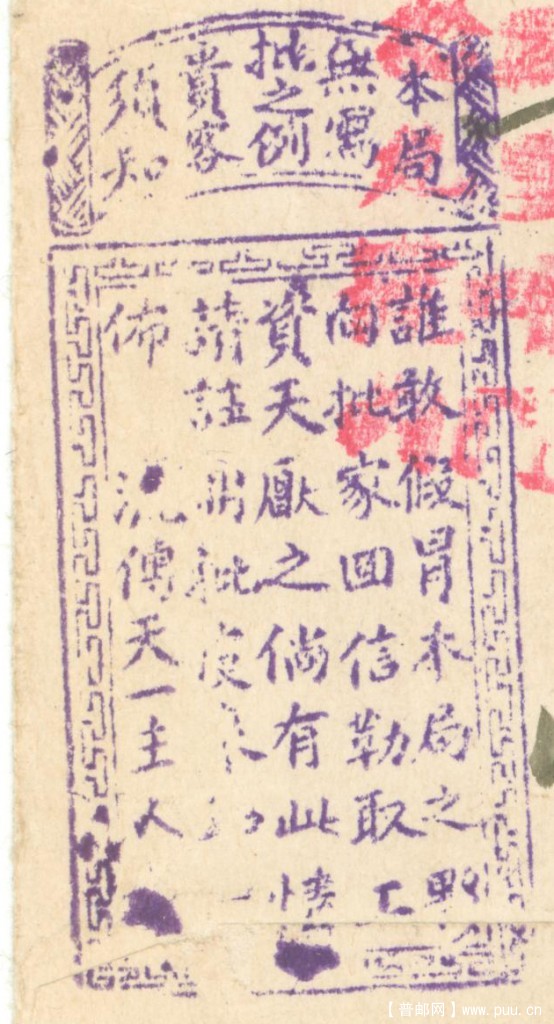 本局
無寫
批之例
貴客
須知
誰敢假冒本局之
向批家回信勒取工
資天厭之倘有此情
請註批
佈 汎傳天一主人
【普邮网】www.puu.cn